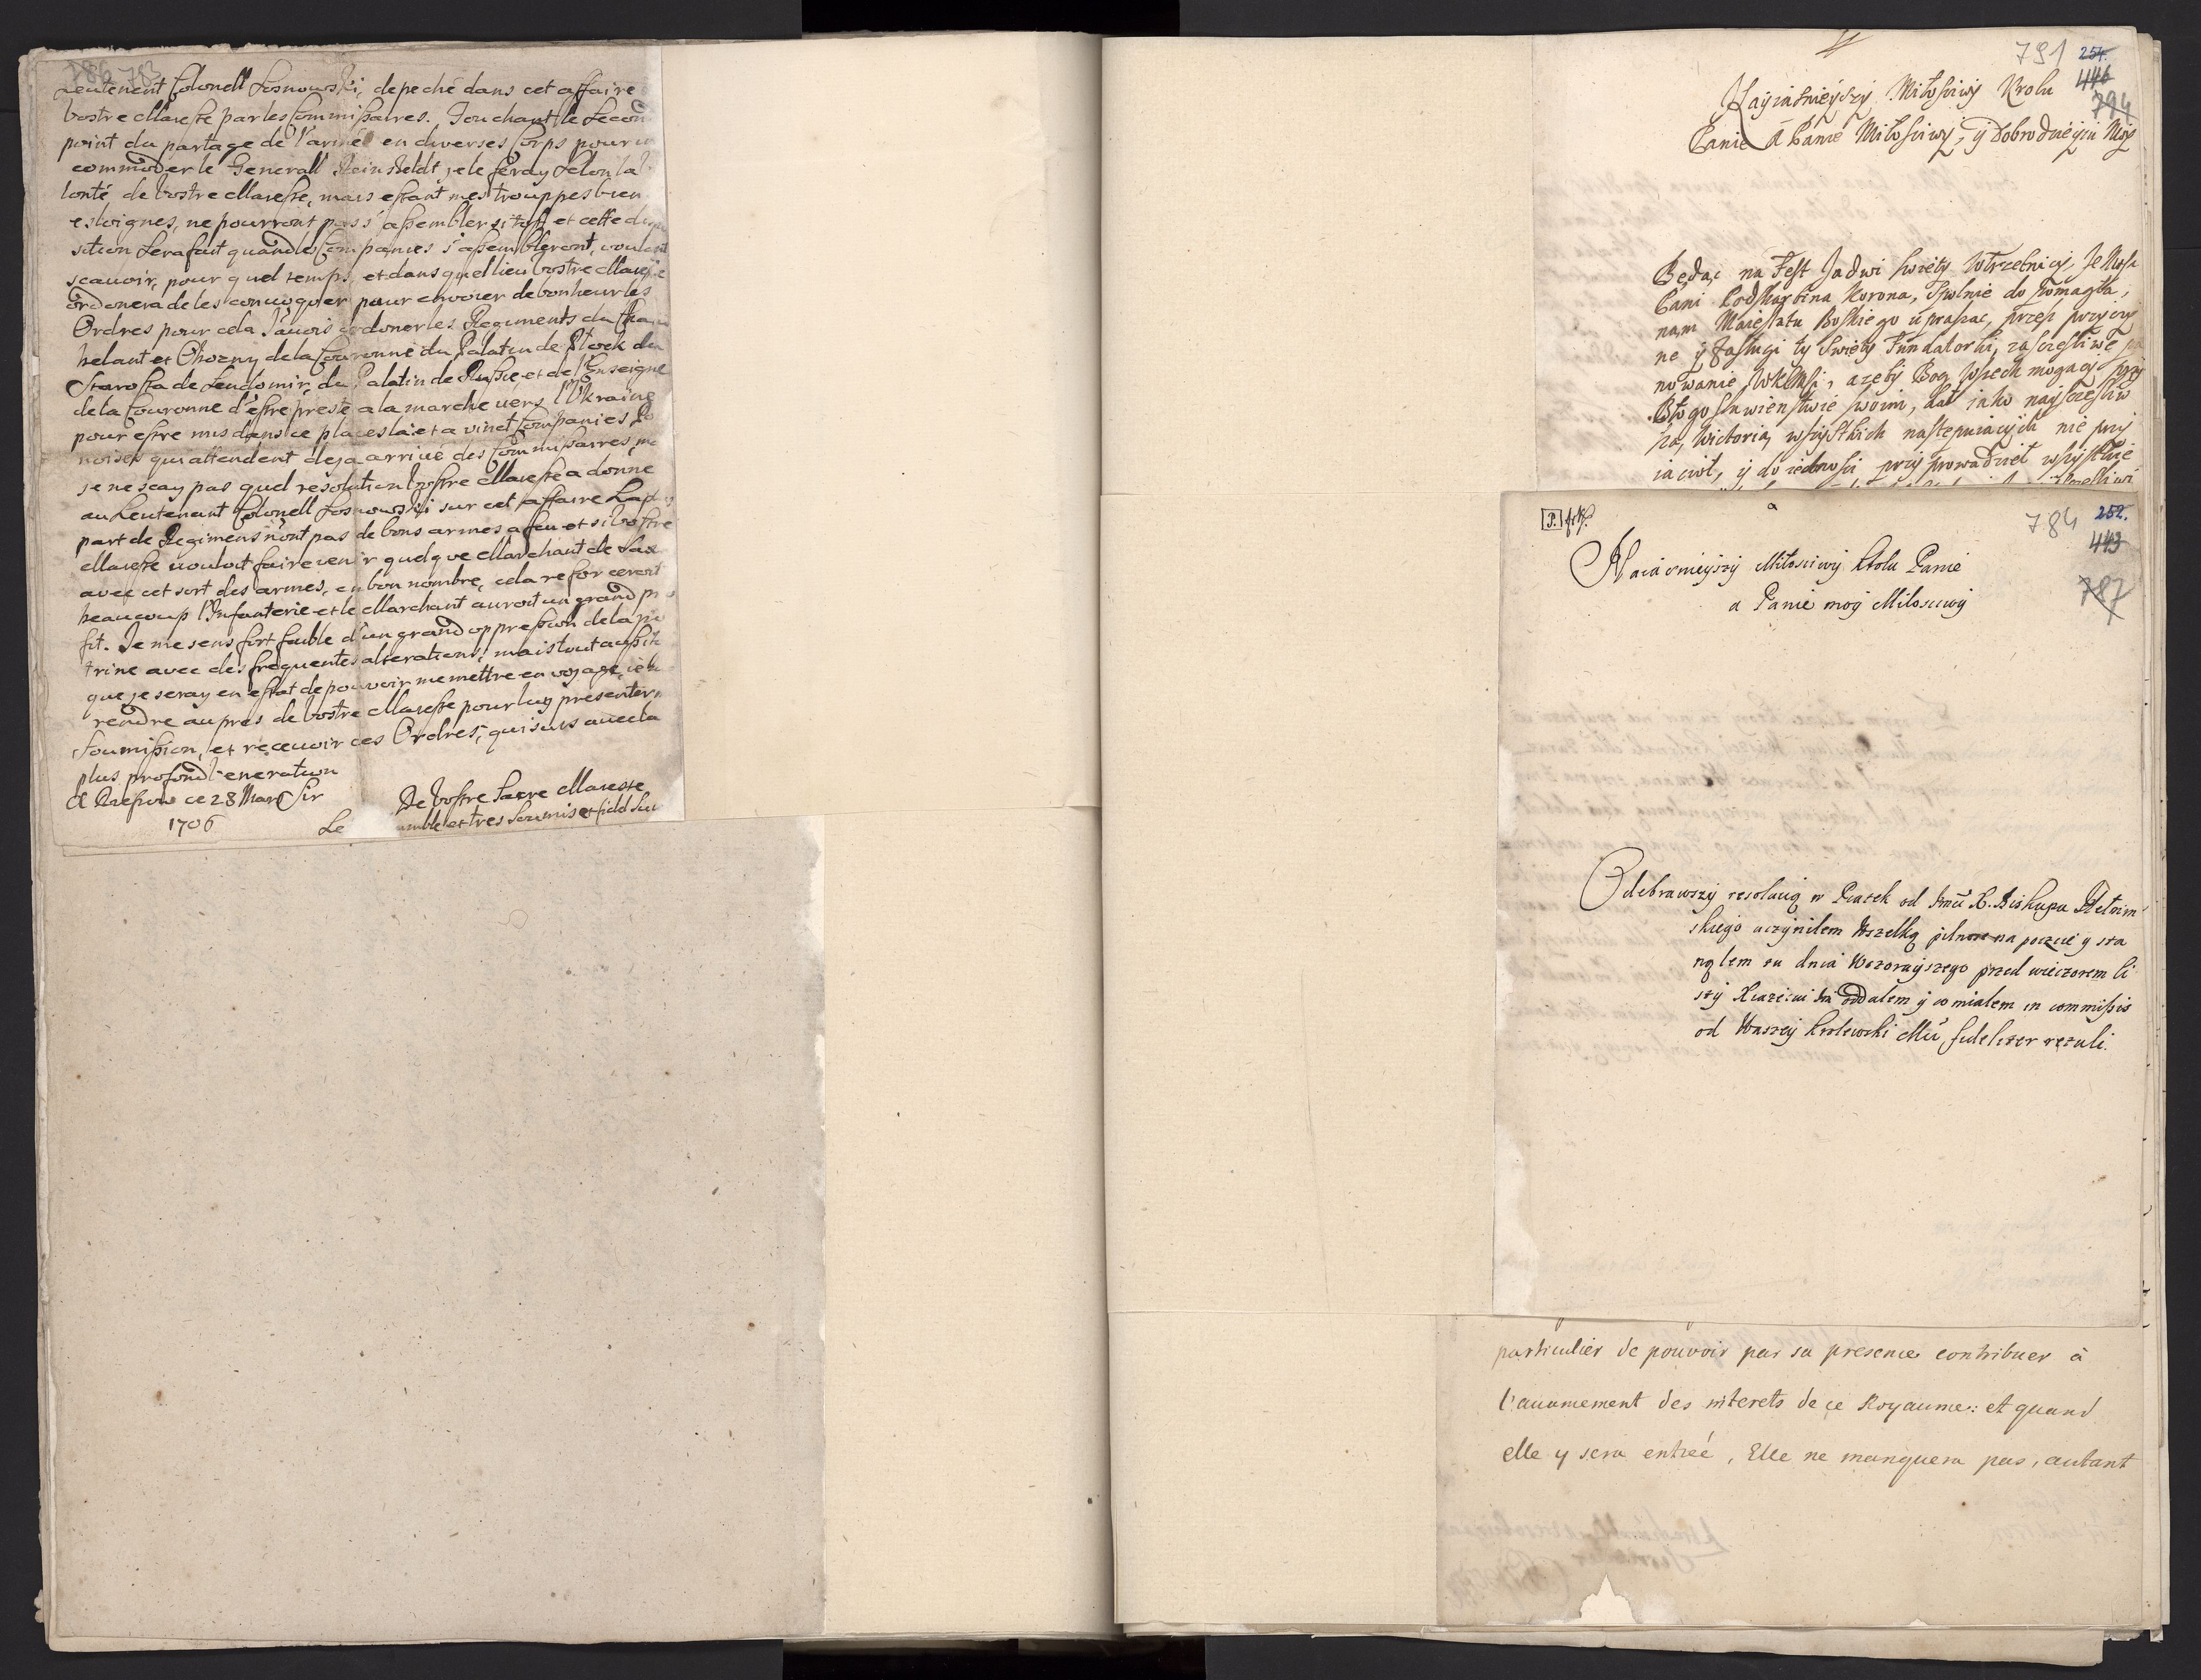 786 783
Leutenent Colonell Losnowski, depeché dans cet affaire
vostre Maieste par les Commissaires. Touchant le Secon
point du partage de l'armée en diverses Corps pour
commoder le Generall Reinskeldt je le feray Selon la
lonté de Vostre Maieste, mais estant mes trouppes bien
esloignes, ne pourront pas s'assembler si tost et cette
sition sera fait quand les Companies s'assembleront,
scauoir, pour quel temps, et dans quel lieu vostre Maieste
ordonera de les conuoquer pour envoier de bonheur les
Ordres pour cela J'auois ordoner les Regiments du
belant et Chozny de la Couronne du Palatin de Plock du
Starosta de Sendomir, du Palatin de Russie, et de l'Enseigne
de la Couronne d'estre preste a la marche vers l'Ukraine
pour estre mis dans ce places la et a vinct Companies
noises qui attendent deja arrivé des Commissaires,
je ne scay pas quel resolution Vostre Maieste a donne
au Leutenent Colonell Losnowski sur cet affaire
part de Regimens n'ont pas de bons armes a feu et si vostre
Maieste vouloit faire venir quelque Marchant de
avec cet sort des armes, en bon nombre, cela reforceroit
beaucoup l'Infanterie et le Marchant auroit un grand
fit. Je me sens fort faible d'un grand oppression de la
trine avec des frequentes alterations, mais tout aussi
que je seray en estat de pouvoir me mettre en voyage,
rendre au pres de Vostre Maieste pour luy presenter
Soumission, et recevoir ces Ordres, qui suis avec la
plus profond Veneration
ce 28 Mars Sir
1706
De Vostre Sacre Maieste
Le umble et tres Soumis et fidel
791 254.
446
794
Nayiasnieyszy Miłosciwy Krolu
Panie a Panie Miłosciwy, y Dobrodzieyu Moy
Będąc na Fest Jadwi swięty w Trzebnicy,
Pani Podskarbina Korona, spolnie do pomagła,
nam Maiestatu Boskiego upraszac, przez przyczy
ne y Zasługi ty Swięty Fundatorki, zasczesliwe
nowanie WKMsci, azeby Bog wszechmogący przy
Błogosławienstwie swoim, dał iako nayscesliw
szą, Wictorią wszystkich nastempuiących nie przy
iacioł, y do iednosci przyprowadzieł wszystkie
784 252.
443
787
Naiasnieyszy Miłosciwy Krolu Panie
a Panie moy Miłosciwy
Odebrawszy resolucią w Piatek od Jmci X. Biskupa Chełmin
skiego uczyniłem Wszelką pilnosc na poczcie y sta
nąłem tu dnia Wczorayszego przed wieczorem li
sty Xiazeciu Jmci oddałem y co miałem in commissis
od Waszey Krolewski Mci, fideliter retuli.
particulier de pouvoir par sa presence contribuer à
l'avancement des interets de ce Royaume: et quand
elle y sera entreé, Elle ne manquera pas, autant